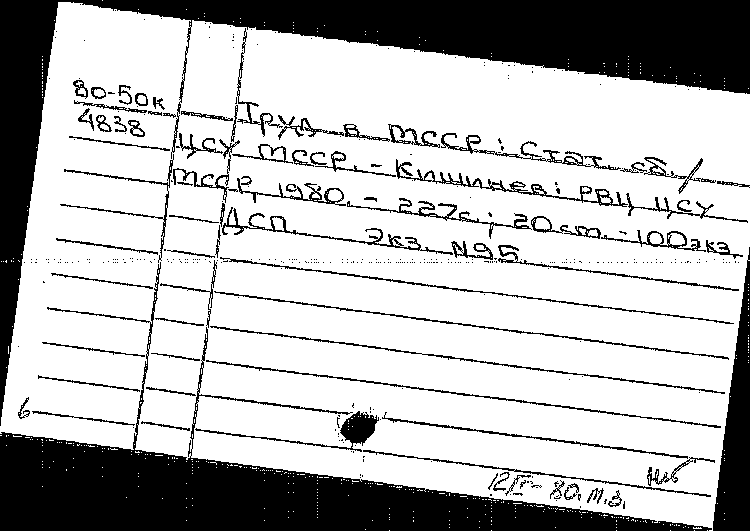 80-50к
4838
Труд в МССР: Стат. сб. /
ЦСУ МССР. - Кишинев: РВЦ ЦСУ
МССР, 1980. - 227с.; 20 cm. - 100экз.
ДСП. Экз. N95.
6
80. М.З.